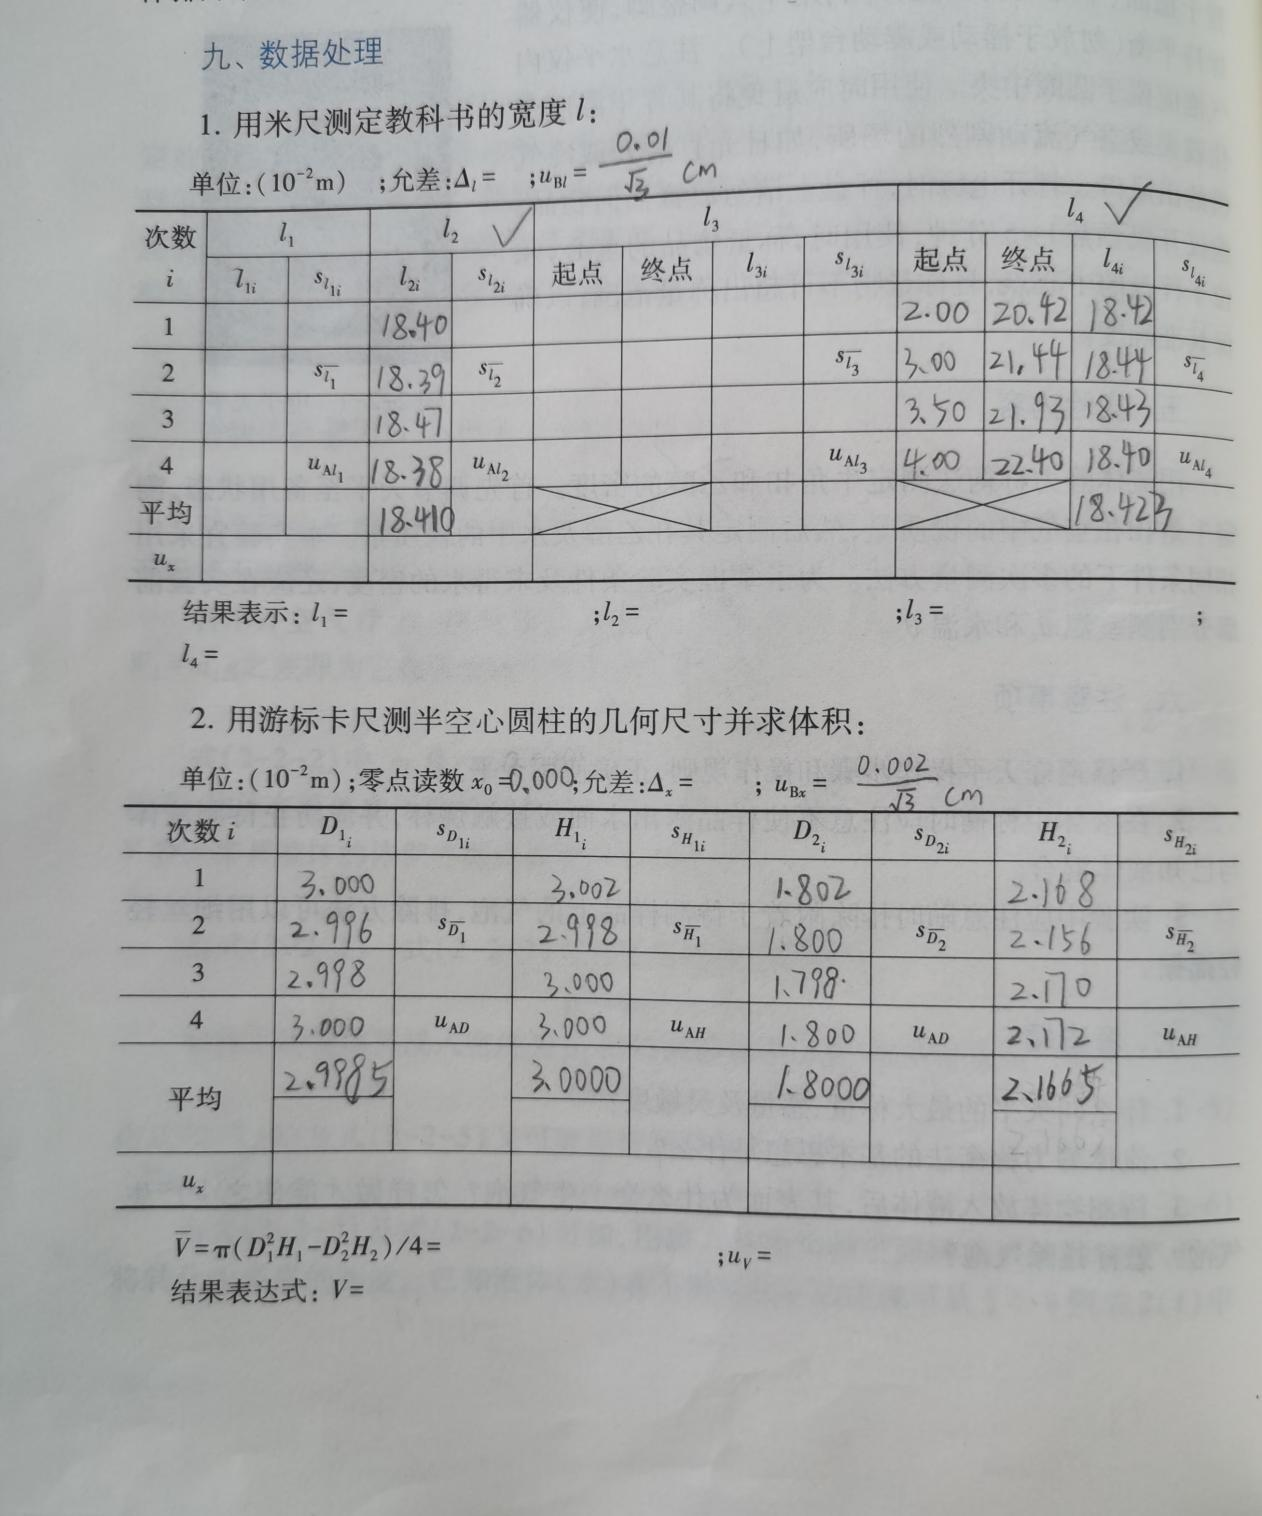 九、数据处理
1. 用米尺测定教科书的宽度 l：
单位:(10⁻²m) ;允差:Δl = ;uBl = 0.01/√3 cm
次数 i l1 l2 ✓ l3 l4 ✓
l1i sl1i l2i sl2i 起点 终点 l3i sl3i 起点 终点 l4i sl4i
1 18.40 2.00 20.42 18.42
2 s l̄1 18.39 s l̄2 s l̄3 3.00 21.44 18.44 s l̄4
3 18.47 3.50 21.93 18.43
4 uAl1 18.38 uAl2 uAl3 4.00 22.40 18.40 uAl4
平均 18.410 18.423
ux
结果表示: l1 = ;l2 = ;l3 = ;
l4 =
2. 用游标卡尺测半空心圆柱的几何尺寸并求体积：
单位:(10⁻²m);零点读数 x0 =0.000;允差:Δx = ; uBx = 0.002/√3 cm
次数 i D1i sD1i H1i sH1i D2i sD2i H2i sH2i
1 3.000 3.002 1.802 2.168
2 2.996 s D̄1 2.998 s H̄1 1.800 s D̄2 2.156 s H̄2
3 2.998 3.000 1.798 2.170
4 3.000 uAD 3.000 uAH 1.800 uAD 2.172 uAH
平均 2.9985 3.0000 1.8000 2.1665
ux
V̄=π(D1²H1−D2²H2)/4= ;uV =
结果表达式: V=